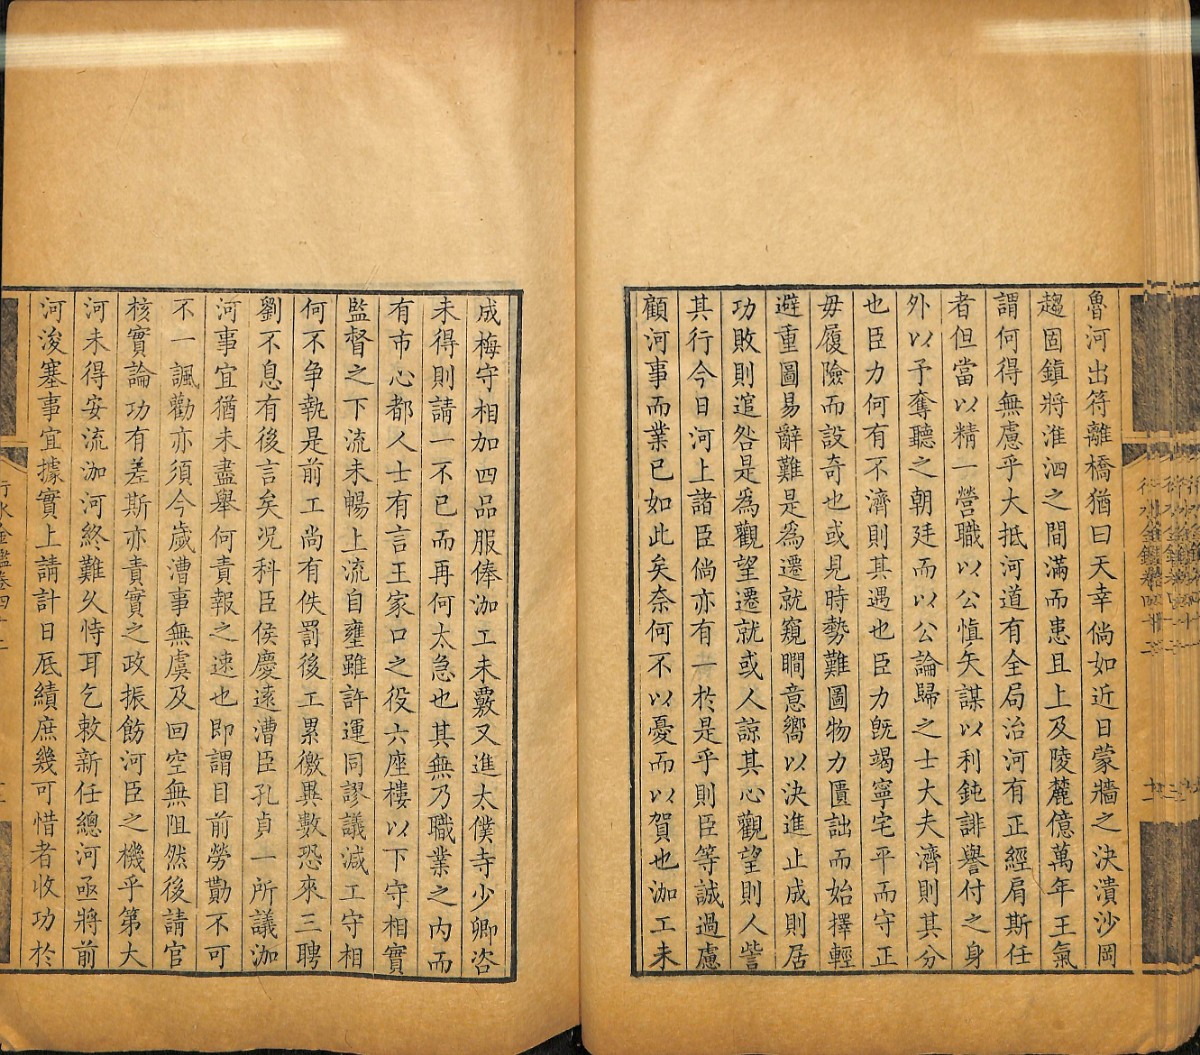 魯河出符離橋猶曰天幸倘如近日蒙牆之決潰沙岡
趨固鎮將淮泗之間滿而患且上及陵麓億萬年王氣
謂何得無慮乎大抵河道有全局治河有正經肩斯任
者但當以精一營職以公慎矢謀以利鈍誹譽付之身
外以予奪聽之朝廷而以公論歸之士大夫濟則其分
也臣力何有不濟則其遇也臣力旣竭寧宅平而守正
毋履險而設奇也或見時勢難圖物力匱詘而始擇輕
避重圖易辭難是爲遷就窺瞷意嚮以決進止成則居
功敗則追咎是為觀望遷就或人諒其心觀望則人訾
其行今日河上諸臣倘亦有一於是乎則臣等誠過慮
顧河事而業已如此矣奈何不以憂而以賀也泇工未
成梅守相加四品服俸泇工未覈又進太僕寺少卿咨
未得則請一不已而再何太急也其無乃職業之内而
有市心都人士有言王家口之役六座樓以下守相實
監督之下流未暢上流自壅雖許運同謬議減工守相
何不争執是前工尚有佚罰後工累徼異數恐來三聘
劉不息有後言矣况科臣侯慶遠漕臣孔貞一所議泇
河事宜猶未盡舉何責報之速也即謂目前勞勩不可
不一諷勸亦須今歲漕事無虞及回空無阻然後請官
核實論功有差斯亦責實之政振飭河臣之機乎第大
河未得安流泇河終難久恃耳乞敕新任總河亟將前
河浚塞事宜據實上請計日厎績庶幾可惜者收功於
行水金鑑卷四十二